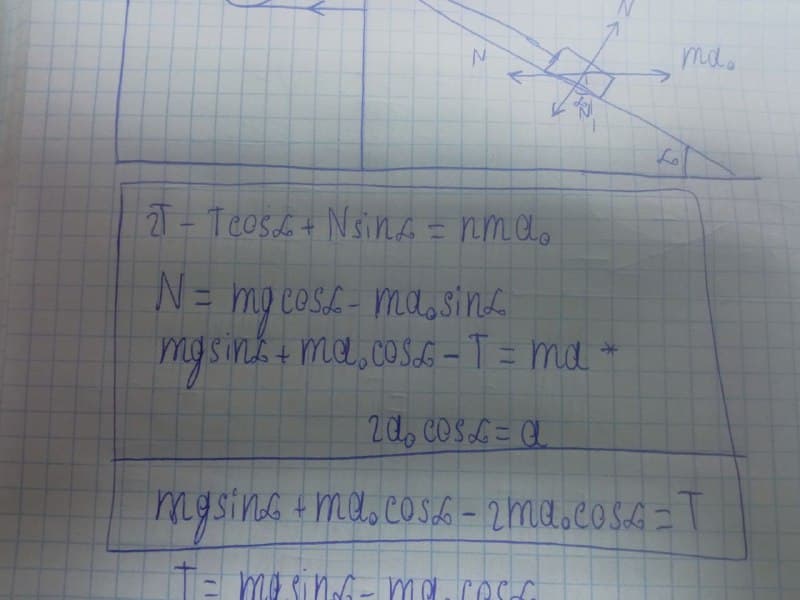 N
N
ma₀
α
2T - Tcosα + Nsinα = nma₀
N = mgcosα - ma₀sinα
mgsinα + ma₀cosα - T = ma *
2a₀cosα = a
mgsinα + ma₀cosα - 2ma₀cosα = T
T = mgsinα - ma₀cosα